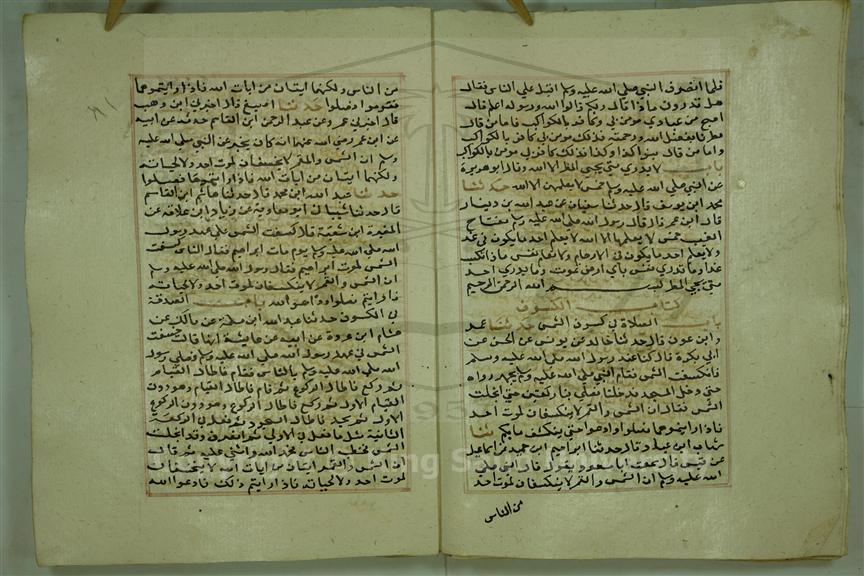 فلما انصرف النبي صلى الله عليه وسلم اقبل على الناس فقال
هل تدرون ماذا قال ربكم قالوا الله ورسوله اعلم قال
اصبح من عبادي مومن بي وكافر بالكواكب فاما من قال
مطرنا بفضل الله ورحمته فذلك مومن بي كافر بالكواكب
واما من قال بنوا كذا وكذا فذلك كافر بي مومن بالكواكب
باب لا يدري متى يجي المطر الا الله وقال ابو هريرة
عن النبي صلى الله عليه وسلم خمس لا يعلمهن الا الله حدثنا
محمد ابن يوسف قال حدثنا سفيان عن عبد الله بن دينار
قال ابن عمر قال قال رسول الله صلى الله عليه وسلم مفتاح
الغيب خمس لا يعلمها الا الله لا يعلم احد ما يكون في غد
ولا يعلم احد ما يكون في الارحام ولا تعلم نفس ماذا تكسب
غدا وما تدري نفس باي ارض تموت وما يدري احد
متى يجي المطر بسم الله الرحمن الرحيم
كتاب الكسوف
باب الصلاة في كسوف الشمس حدثنا عمر
وابن عون قال حدثنا خالد عن يونس عن الحسن عن
ابي بكرة قال كنا عند رسول الله صلى الله عليه وسلم
فانكسفت الشمس فقام النبي صلى الله عليه وسلم يجر رداه
حتى دخل المسجد فدخلنا فصلى بنا ركعتين حتى انجلت
الشمس فقال ان الشمس والقمر لا ينكسفان لموت احد
فاذا رايتموهما فصلوا وادعوا حتى ينكشف ما بكم ثنا
شهاب ابن عباد قال حدثنا ابراهيم ابن حميد عن اسماعيل
عن قيس قال سمعت ابا مسعود يقول قال النبي صلى
الله عليه وسلم ان الشمس والقمر لا ينكسفان لموت احد
من الناس
من الناس ولكنهما ايتان من ايات الله فاذا رايتموهما
فقوموا وصلوا حدثنا اصبغ قال اخبرني ابن وهب
قال اخبرني عمرو عن عبد الرحمن ابن القاسم حدثه عن ابيه
عن ابن عمر رضى الله عنهما انه كان يخبر عن النبي صلى الله عليه
وسلم ان الشمس والقمر لا يخسفان لموت احد ولا لحياته
ولكنهما ايتان من ايات الله فاذا رايتموهما فصلوا
حدثنا عبد الله ابن محمد قال حدثنا هاشم ابن القاسم
قال حدثنا شيبان ابو معاوية عن زياد ابن علاقة عن
المغيرة ابن شعبة قال كسفت الشمس على عهد رسول
الله صلى الله عليه وسلم يوم مات ابراهيم فقال الناس كسفت
الشمس لموت ابراهيم فقال رسول الله صلى الله عليه وسلم
ان الشمس والقمر لا ينكسفان لموت احد ولا لحياته
فاذا رايتم فصلوا وادعوا الله باب الصدقة
في الكسوف حدثنا عبد الله ابن مسلمة عن مالك عن
هشام ابن عروة عن ابيه عن عايشة انها قالت خسفت
الشمس في عهد رسول الله صلى الله عليه وسلم فصلى رسول
الله صلى الله عليه وسلم بالناس فقام فاطال القيام
ثم ركع فاطال الركوع ثم قام فاطال القيام وهو دون
القيام الاول ثم ركع فاطال الركوع وهو دون الركوع
الاول ثم سجد فاطال السجود ثم فعل في الركعة
الثانية مثل ما فعل في الاولى ثم انصرف وقد انجلت
الشمس فخطب الناس فحمد الله واثنى عليه ثم قال
ان الشمس والقمر ايتان من ايات الله لا ينخسفان
لموت احد ولا لحياته فاذا رايتم ذلك فادعوا الله